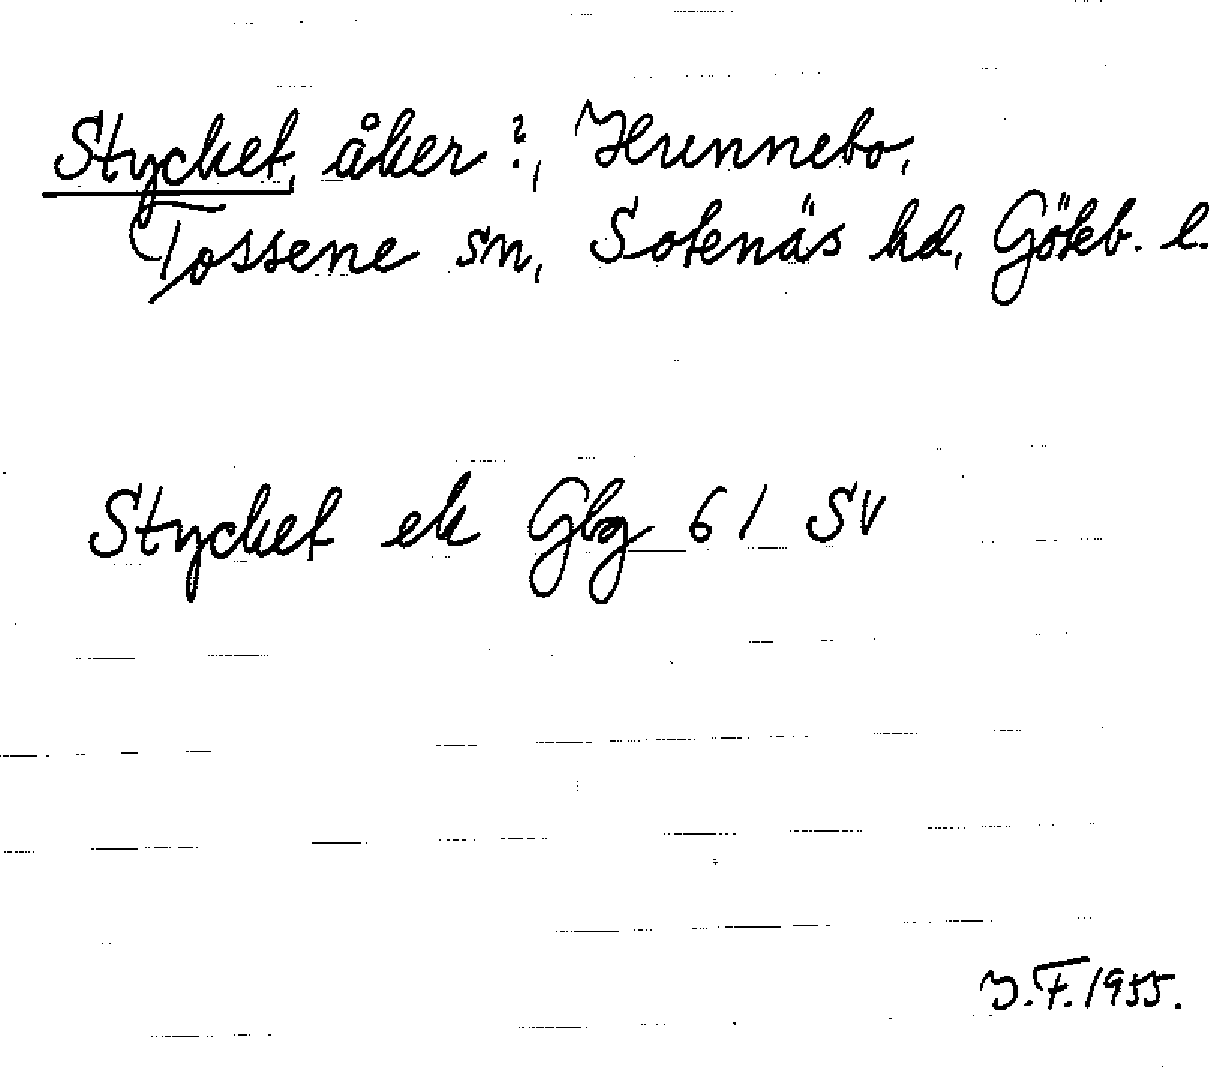 Stycket, åker?, Hunnebo,
Tossene sn, Sotenäs hd, Göteb. l.
Stycket ek Gbg 61 SV
J.F. 1955.